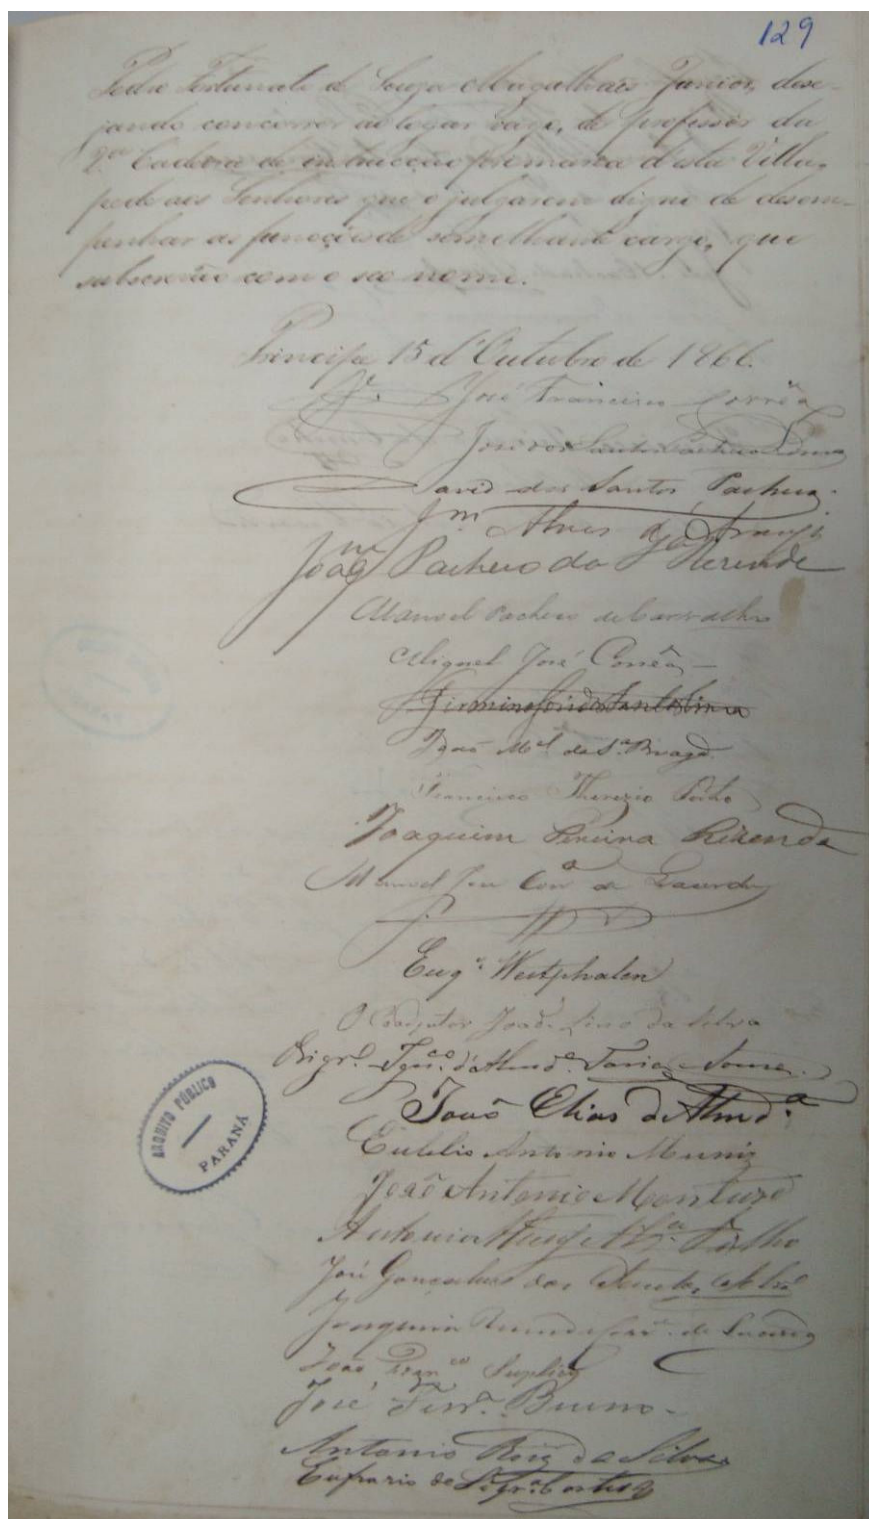 129
Pedro Fortunato de Souza Magalhães Junior, dese-
jando concorrer ao logar vago, de professor da
2.ª Cadeira de instrucção primaria d'esta Villa,
pede aos Senhores que o julgarem digno de desem-
penhar as funcções de semelhante cargo, que
subscrevão com o seo nome.
Principe 15 d'Outubro de 1866.
José Francisco Corrêa
José dos Santos
David dos Santos Pacheco
Jm. Alves de Araujo
João Pacheco de Rezende
Manoel Pacheco de Carvalho
Miguel José Corrêa
Firmino José dos Santos Lima
João Mel. da Sª. Braga
Francisco Therezio Porto
Joaquim Pereira Rezende
Manoel José Corª de Lacerda
Eugº. Westphalen
O Coadjutor João da Silva
Ignco. d'Almdª. Faria Souza
João Elias de Almdª
Eulalio Antonio Muniz
João Antonio
Antonio Filho
José Gonçalves dos Santos
Joaquim de Lacerda
João Franco. Supplicy
José Ferrª. Bueno
Antonio Roiz da Silva
Eufrazio de Cortes
ARQUIVO PÚBLICO
PARANÁ